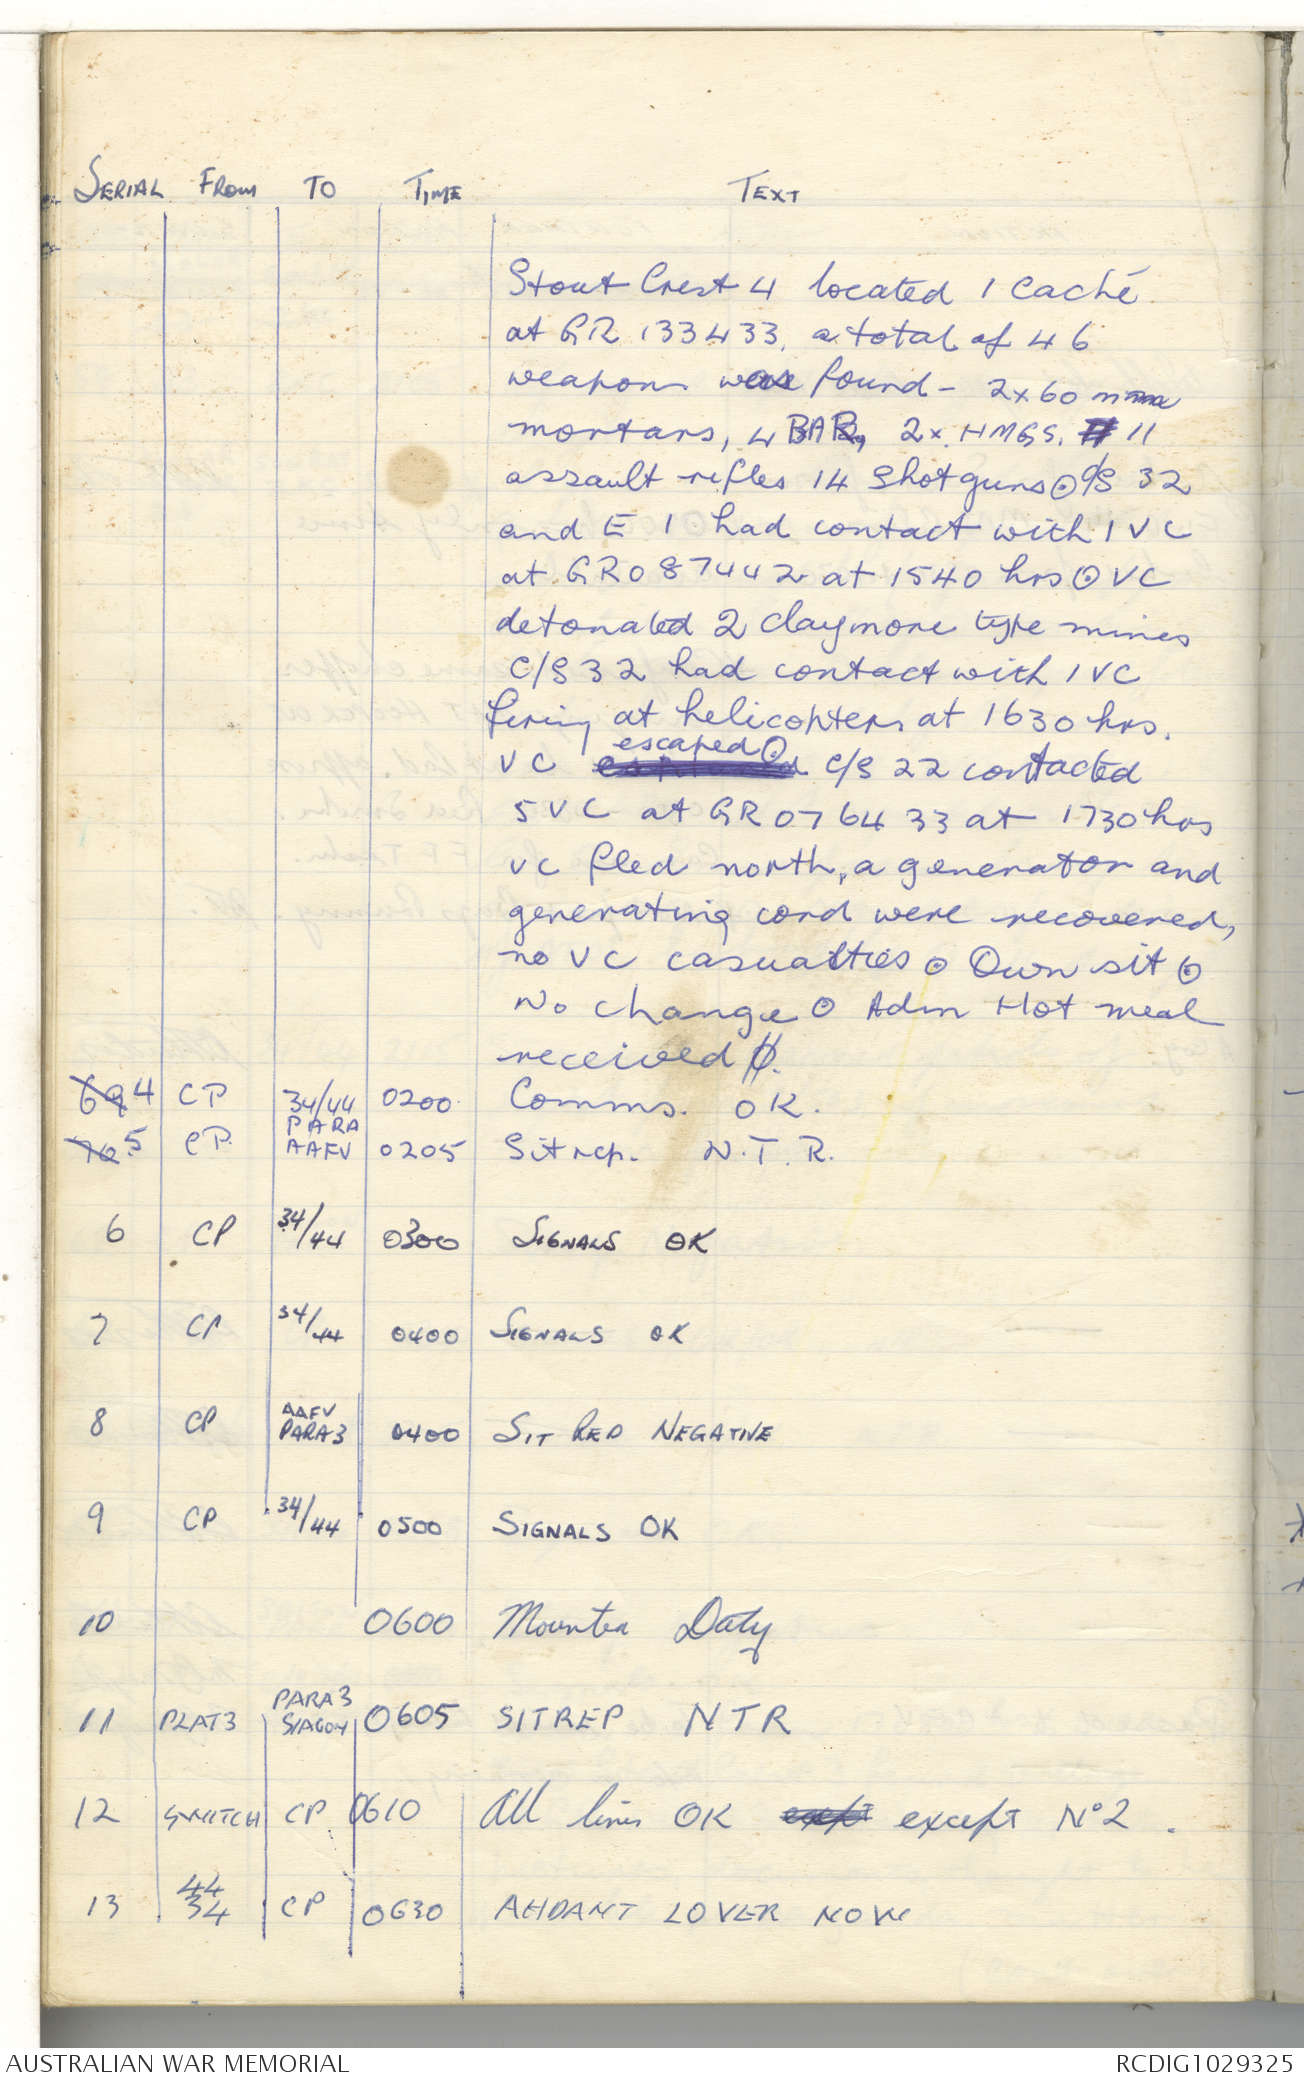 SERIAL FROM TO TIME TEXT
Stout Crest 4 located 1 Caché
at GR 133433, a total of 46
weapons were found - 2x60 mm
mortars, 4 BAR, 2x HMGS, 11
assault rifles 14 Shotguns ⊙ C/S 32
and E 1 had contact with 1 VC
at GR 087442 at 1540 hrs ⊙ VC
detonated 2 Claymore type mines
C/S 32 had contact with 1 VC
firing at helicopters at 1630 hrs.
escaped ⊙
VC C/S 22 contacted
5 VC at GR 076433 at 1730 hrs
VC fled north, a generator and
generating cord were recovered,
no VC casualties ⊙ Own sit ⊙
No change ⊙ Adm Hot meal
received
69 4 CP 34/44 0200 Comms. OK.
70 5 CP. PARA AAFV 0205 Sitrep. N.T.R.
6 CP 34/44 0300 SIGNALS OK
7 CP 34/44 0400 SIGNALS OK
8 CP AAFV PARA3 0400 SIT RED NEGATIVE
9 CP 34/44 0500 SIGNALS OK
10 0600 Mounted Duty
11 PLAT3 PARA3 0605 SITREP NTR
12 SWITCH CP 0610 All lines OK except No 2.
13 44 34 CP 0630 LOVER NOW
AUSTRALIAN WAR MEMORIAL RCDIG1029325